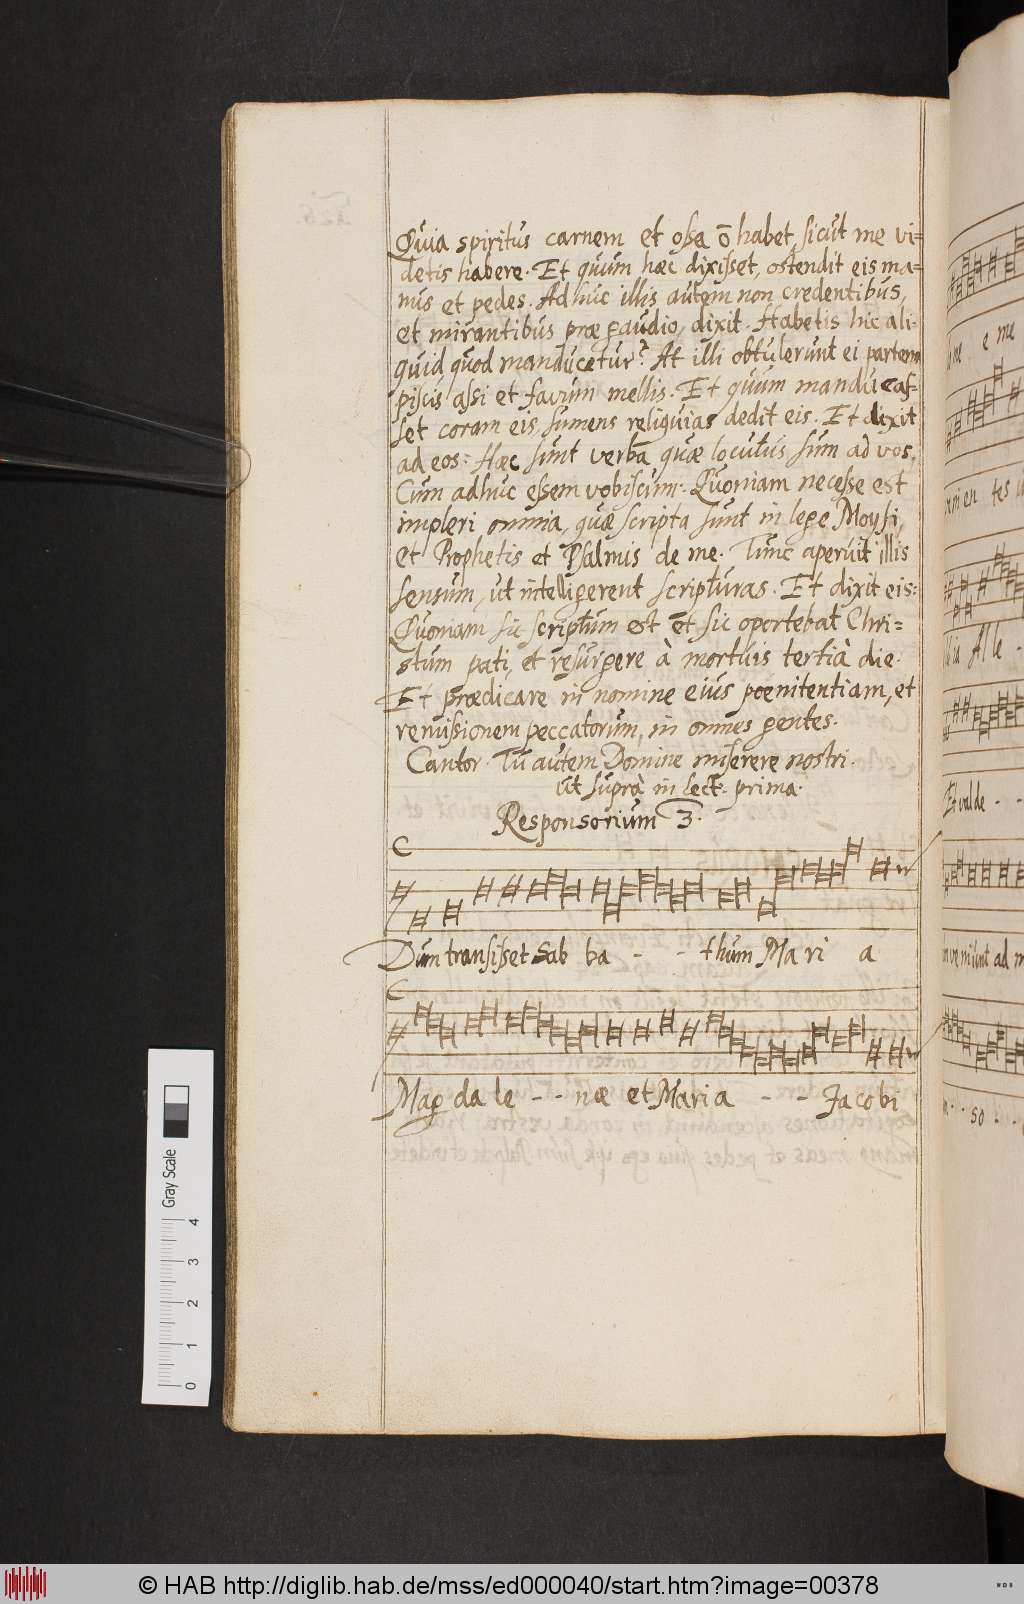 Quia spiritus carnem et oßa ō habet, sicut me vi=
detis habere. Et quum hæc dixisset, ostendit eis ma=
nus et pedes. Adhuc illis autem non credentibus,
et mirantibus præ gaudio, dixit. Habetis hic ali=
quid quod manducetur? At illi obtulerunt ei partem
piscis assi et favum mellis. Et quum manducas=
set coram eis, sumens reliquias dedit eis. Et dixit
ad eos: Hæc sunt verba quæ locutus sum ad vos,
Cum adhuc essem vobiscum: Quoniam necesse est
impleri omnia, quæ scripta sunt in lege Moysi,
et Prophetis et Psalmis de me. Tunc aperuit illis
sensum, ut intelligerent scripturas. Et dixit eis:
Quoniam sic scriptum est et sic oportebat Chri=
stum pati, et resurgere à mortuis tertià die.
Et prædicare in nomine eius poenitentiam, et
remissionem peccatorum, in omnes gentes.
Cantor. Tu autem Domine miserere nostri.
ut suprà in lect: prima.
Responsorium 3.
Dum transisset Sab ba - - thum Ma ri a
Mag da le - - næ et Maria - - Jacobi
e me
tes
Alle -
Et valde - -
veniunt ad m
so - -
Gray Scale
0 1 2 3 4
© HAB http://diglib.hab.de/mss/ed000040/start.htm?image=00378